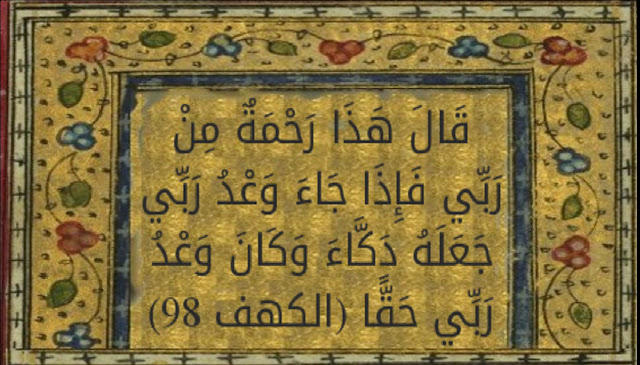 قَالَ هَذَا رَحْمَةٌ مِنْ
رَبِّي فَإِذَا جَاءَ وَعْدُ رَبِّي
جَعَلَهُ دَكَّاءَ وَكَانَ وَعْدُ
رَبِّي حَقًّا (الكهف 98)